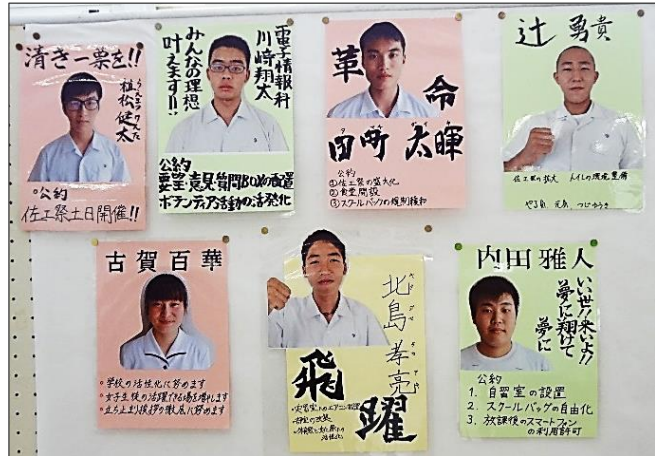 清き一票を!!
植松健太
公約
佐工祭土日開催!!
電子情報科
川﨑翔太
みんなの理想
叶えます!!
公約
要望・意見・質問BOXの設置
ボランティア活動の活発化
革命
田町 太暉
公約
①佐工祭の盛大化
②食堂開設
③スクールバックの規則緩和
辻 勇貴
佐工祭の拡大 トイレの環境整備
やる気 元気 つじゆうき
古賀百華
学校の活性化に努めます
女子生徒の活躍できる場を増やします
立ち止まり挨拶の徹底に努めます
北島孝亮
飛躍
内田雅人
いい世!!来いよ!!
夢に翔けて
夢に
公約
1. 自習室の設置
2. スクールバッグの自由化
3. 放課後のスマートフォン
の利用許可